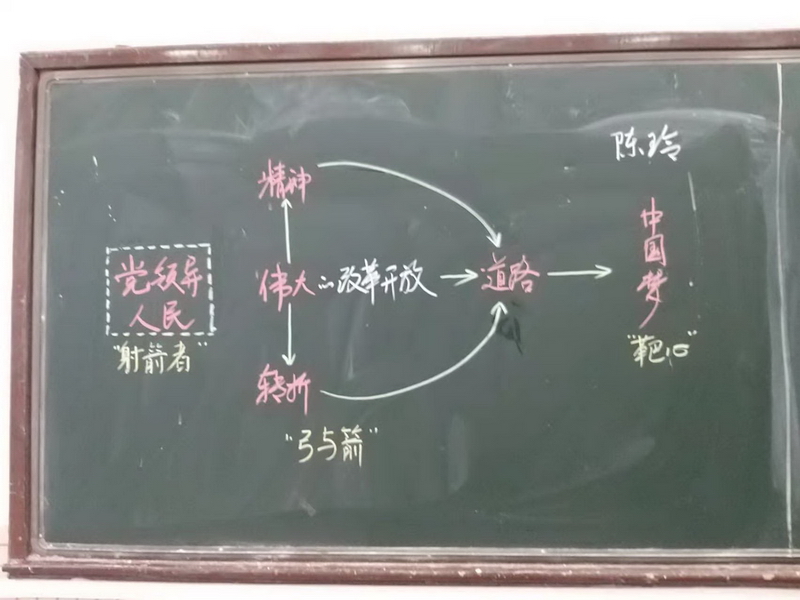 陈玲
精神
党领导
人民
"射箭者"
伟大的改革开放
道路
中国梦
"靶心"
转折
"弓与箭"